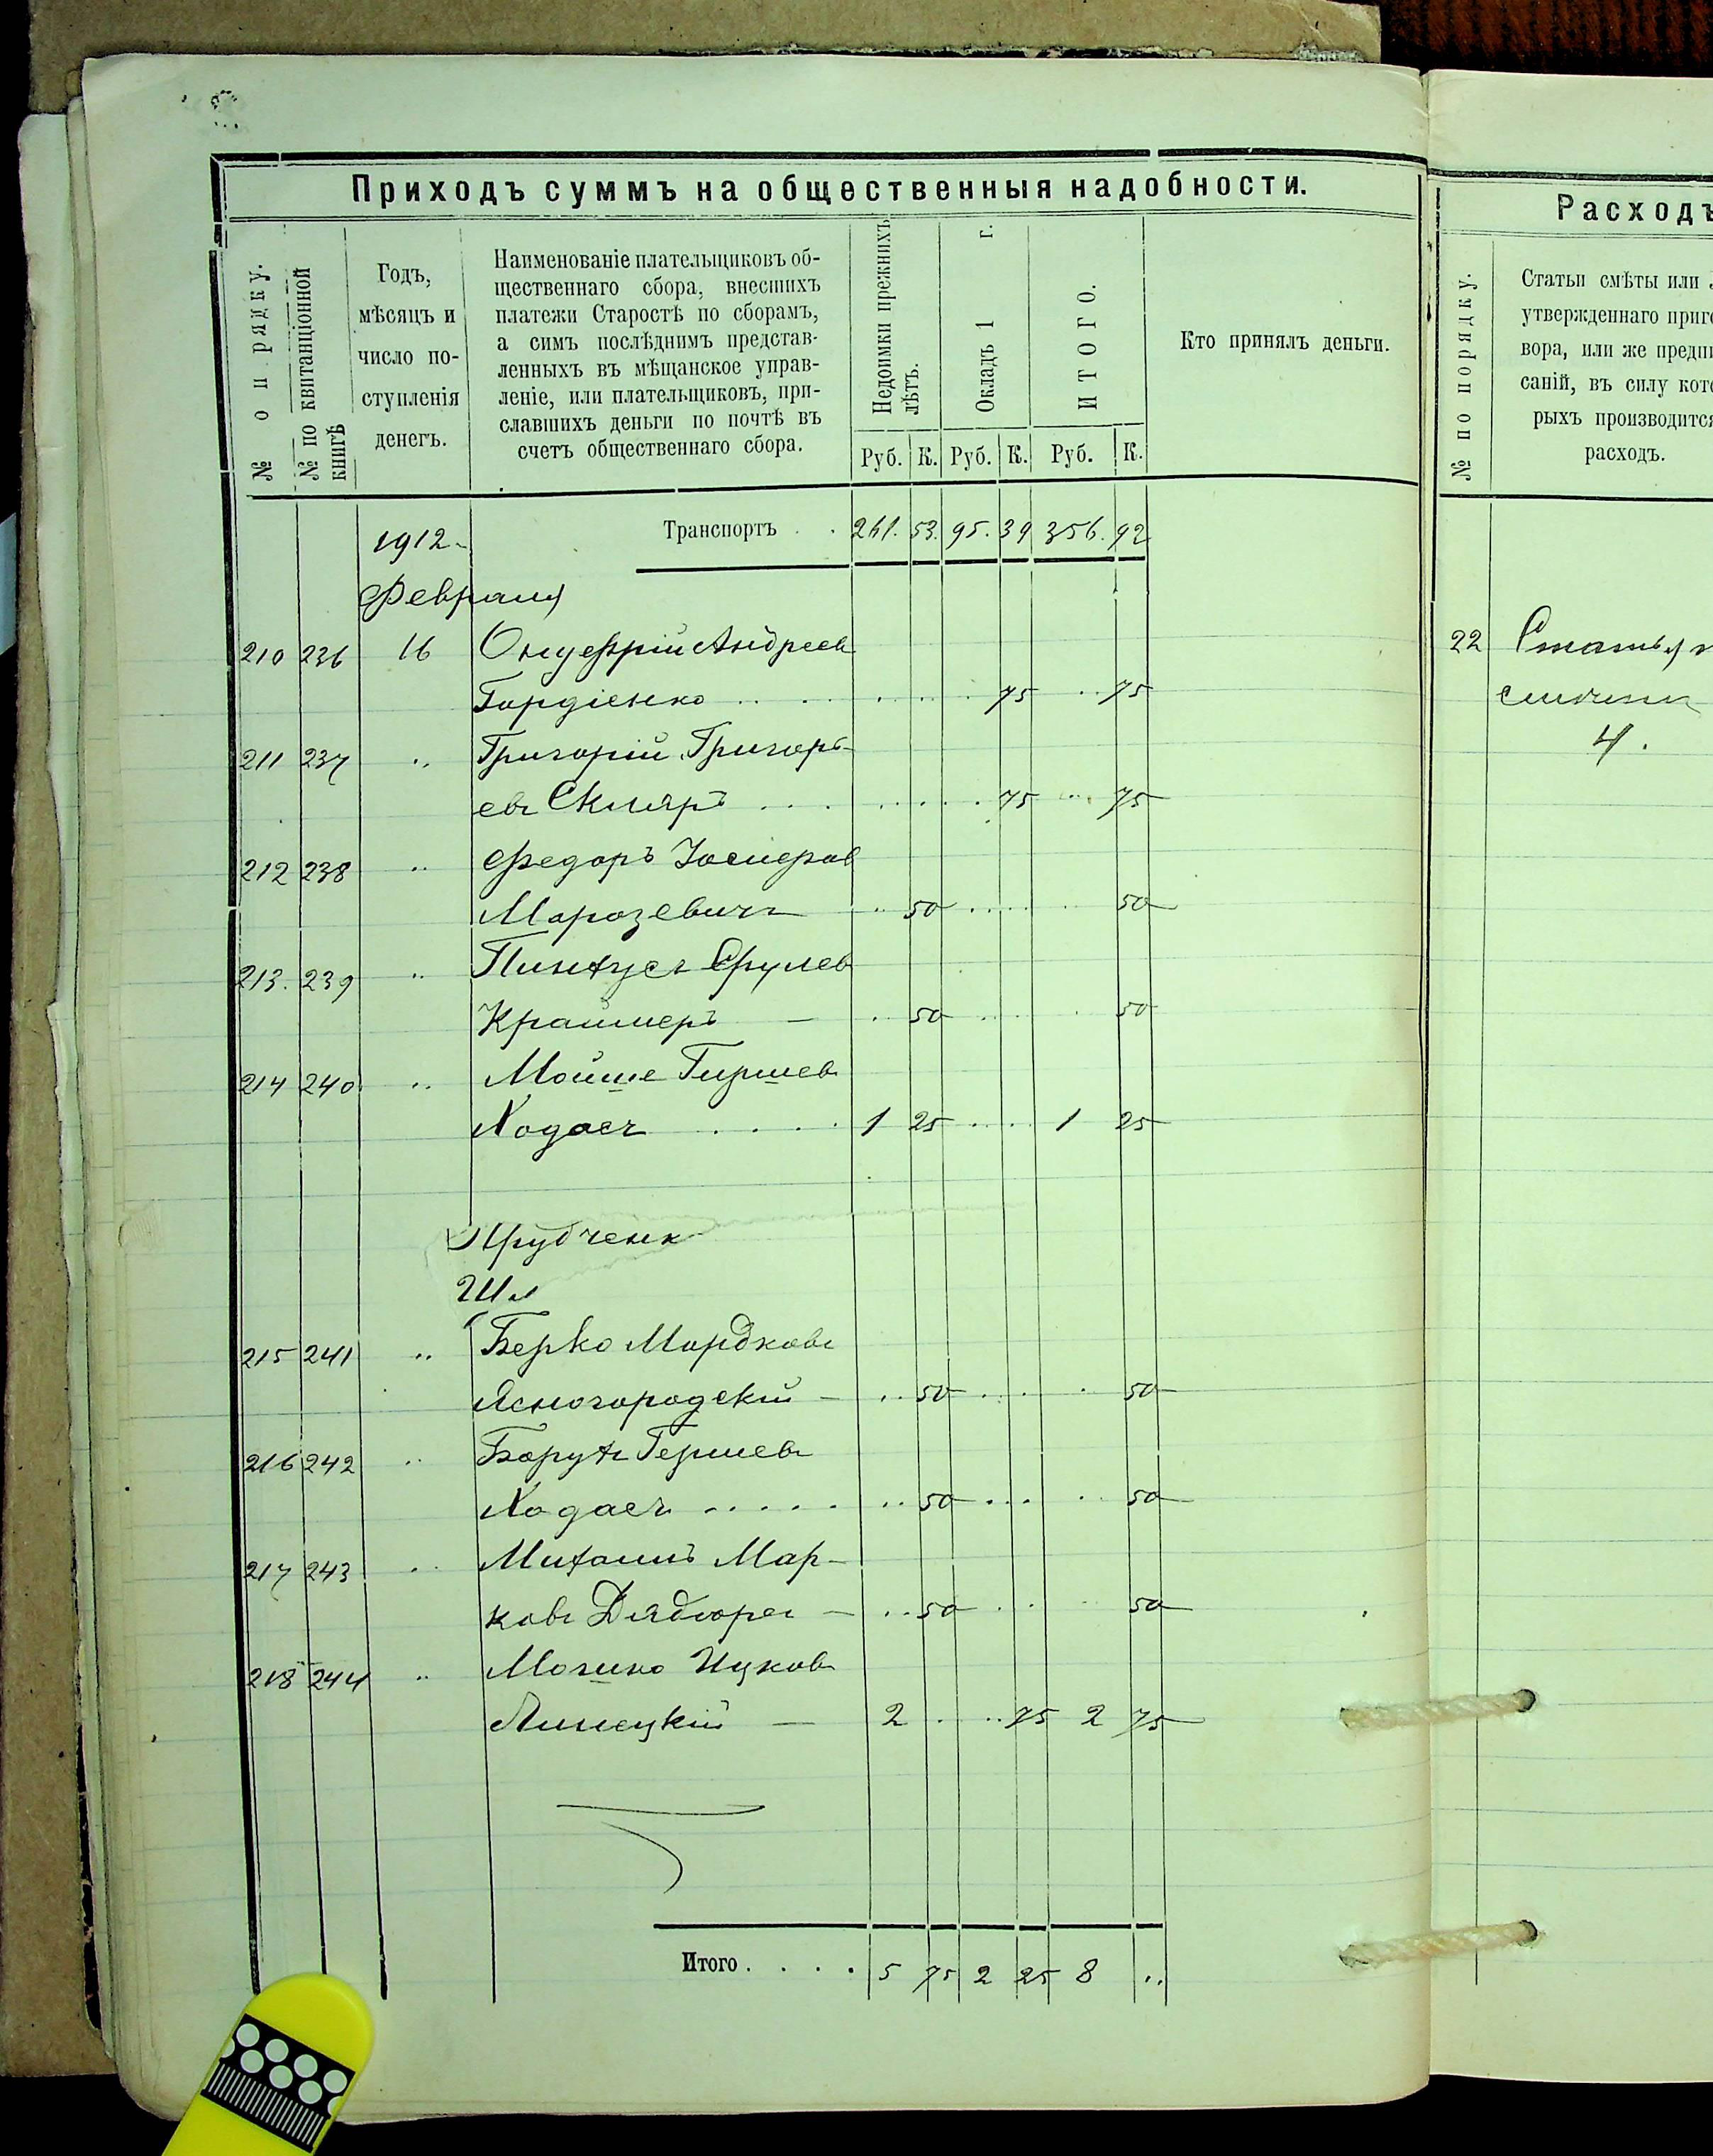 Приходъ суммъ на общественныя надобности.
№ п о рядку.
№ по квитанціонной книгѣ
Годъ,
мѣсяцъ и
число по-
ступленія
денегъ.
Наименованіе плательщиковъ об-
щественнаго сбора, внесшихъ
платежи Старостѣ по сборамъ,
а симъ послѣднимъ представ-
ленныхъ въ мѣщанское управ-
леніе, или плательщиковъ, при-
славшихъ деньги по почтѣ въ
счетъ общественнаго сбора.
Недоимки прежнихъ лѣтъ.
Окладъ 1 г.
ИТОГО.
Кто принялъ деньги.
Руб. К. Руб. К. Руб. К.
1912 Транспортъ 261. 53. 95. 39 356. 92
Февраля
210 236 16 Онуфрій Андреев
Гордіенко 75 75
211 237 " Григорій Григорь-
евъ Скляръ 75 75
212 238 " Федоръ Іосифов
Морозевичъ 50 50
213. 239 " Пинхусъ Срулев
Краймеръ 50 50
214 240 " Мойше Гершев
Ходосъ 1 25 1 25
Прудченк
Шл
215 241 " Берко Мордковъ
Ясногородскій 50 50
216 242 " Борухъ Гершевъ
Ходосъ 50 50
217 243 " Михаилъ Мар-
ковъ 50 50
218 244 " Мошко Ицков
Линецкій 2 75 2 75
Итого. . . . 5 75 2 25 8 ..
Расходъ
№ по порядку.
Статьи смѣты или
утвержденнаго приго
вора, или же предпи
саній, въ силу кото
рыхъ производится
расходъ.
22 Статья
4.